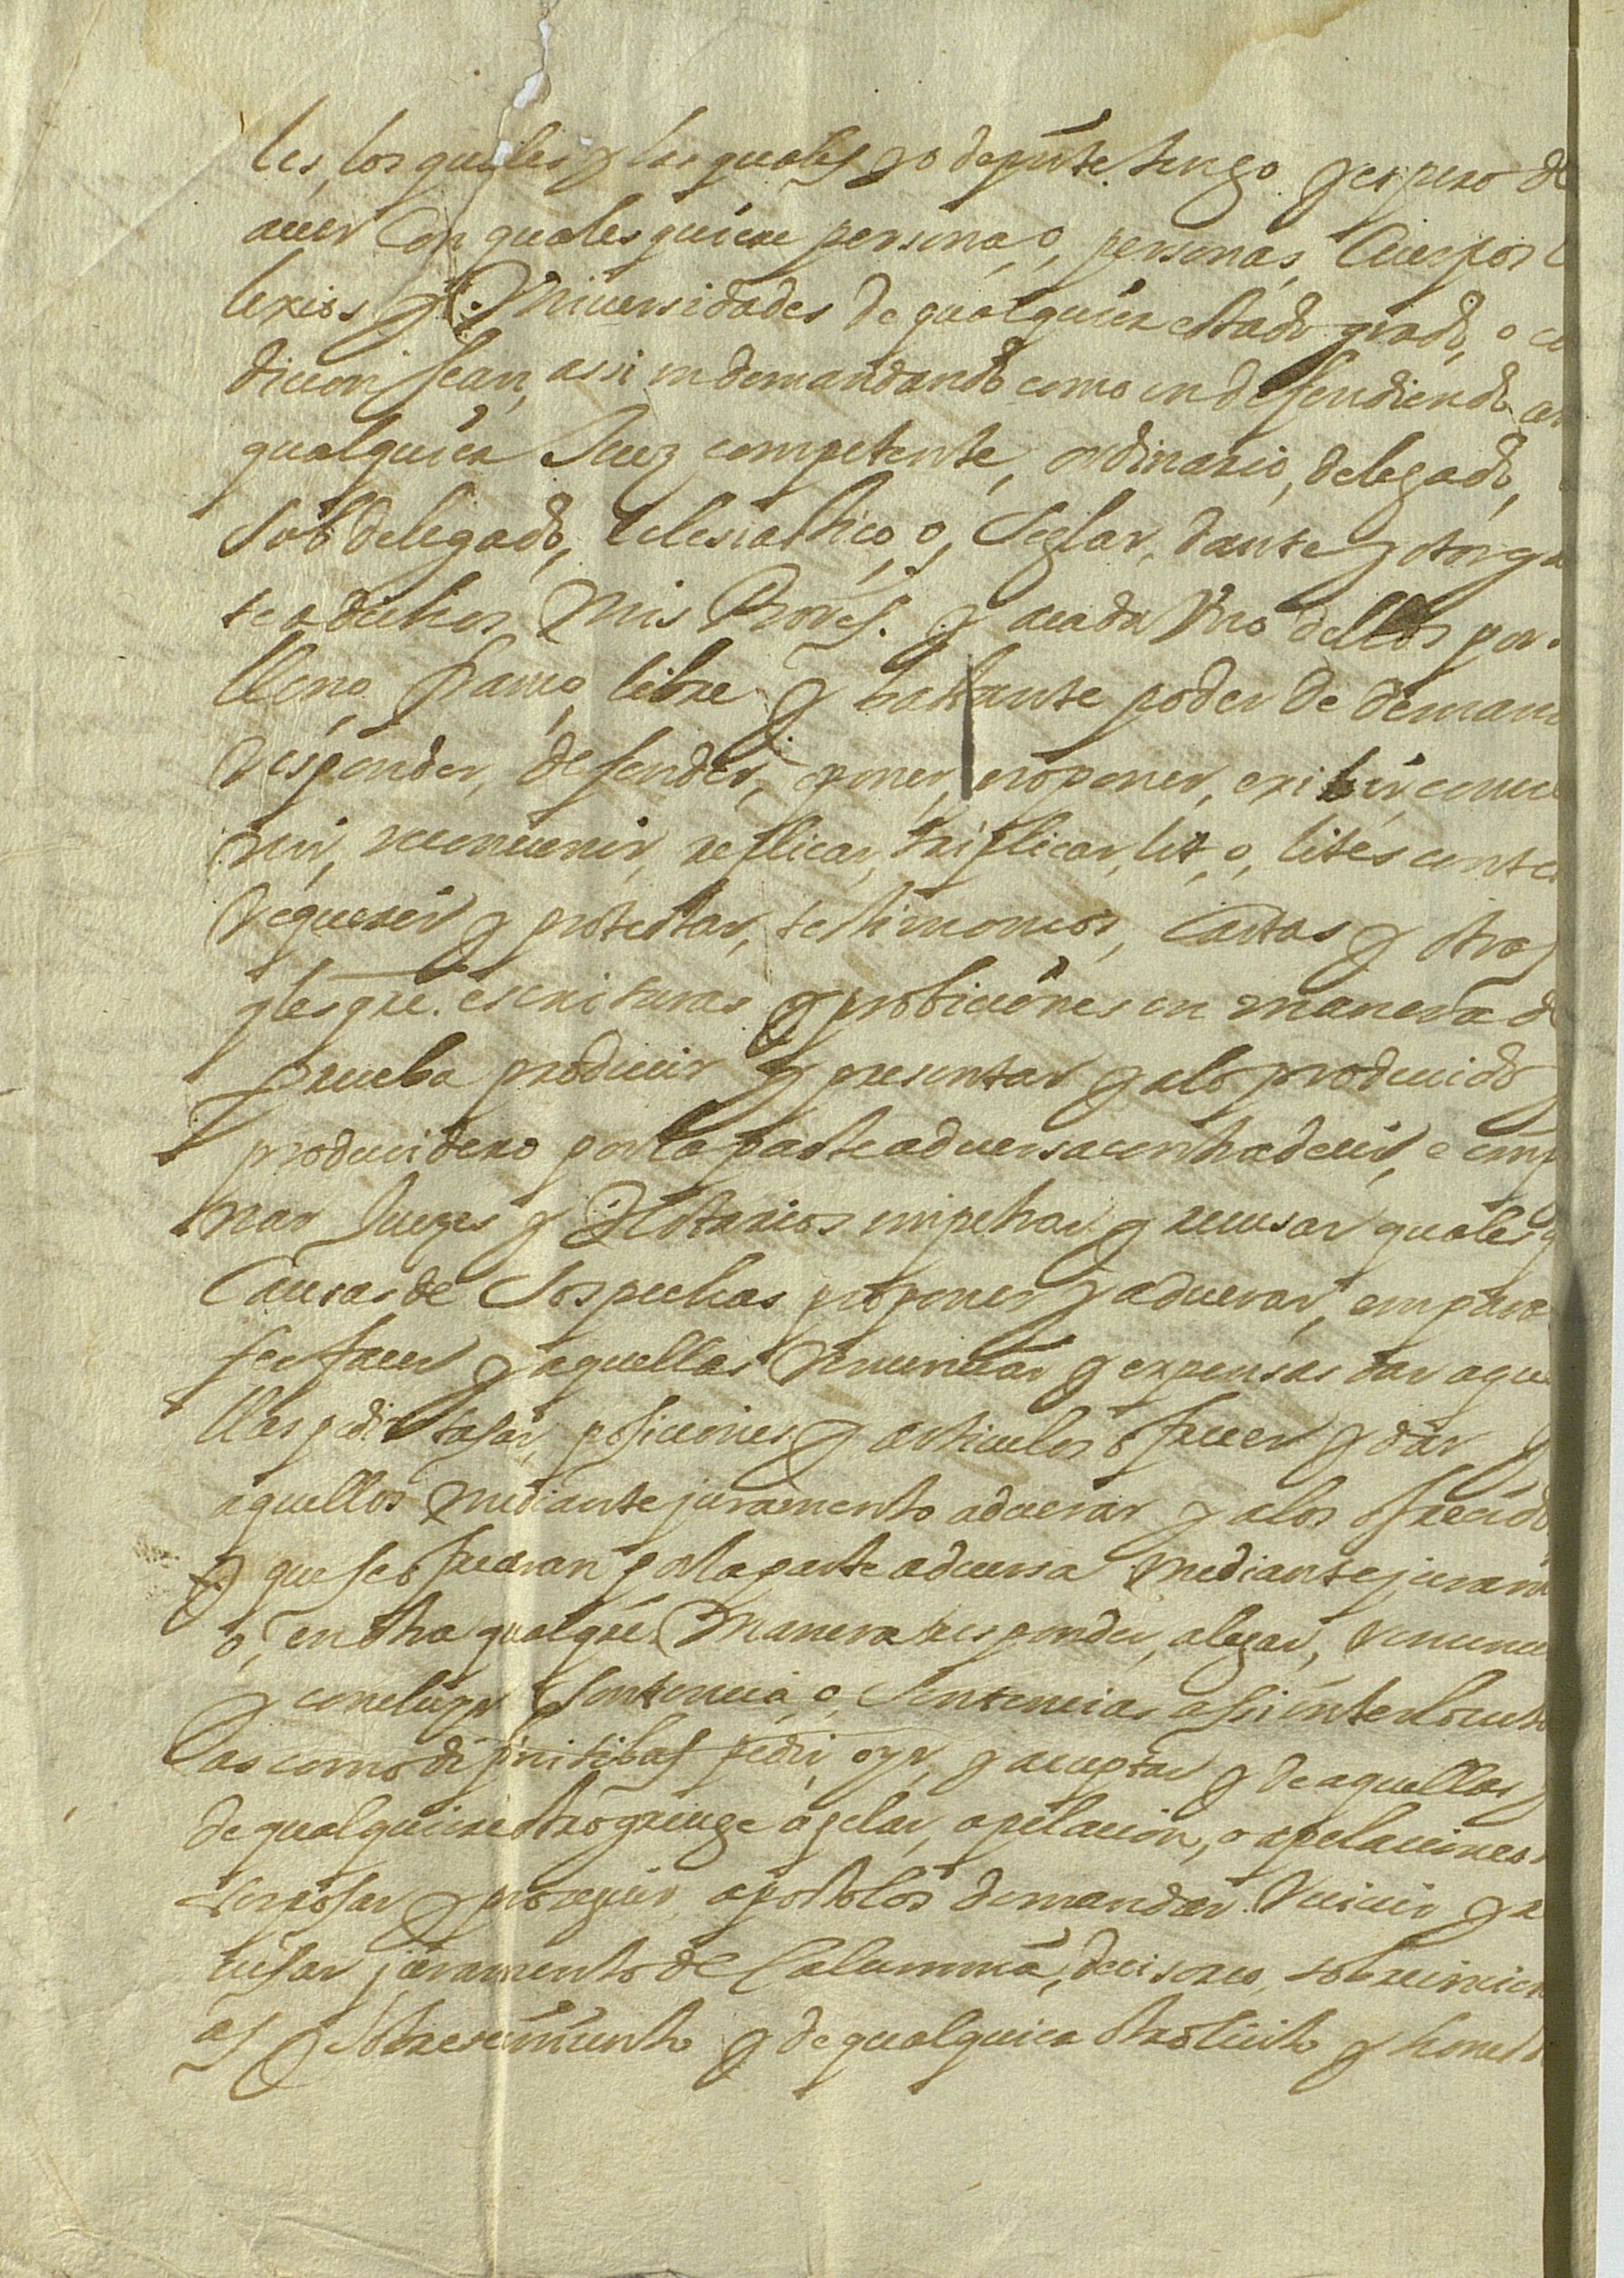 les, los quales y las quales yo depnte. tengo y espero de
auer con qualesquiere persona, o, personas, Cuerpos
lexios y Vniuersidades de qualquiera estado grado, o co
dicion sean, assi en demandando como en defendiendo
qualquiera Juez competente, ordinario, delegado,
Subdelegado, eclesiastico, o, Seglar, dante y otorga
te a dichos mis Prores. y acada Vno dellos por
lleno, franco, libre y bastante poder de deman
Responder, defender, oponer, proponer, exibir, conue
nir, reconuenir, replicar, triplicar, lit, o, lites conte
Requerir y protestar, testimonios, Cartas y otras
qlesque. escrituras y probiciones en manera de
prueba producir y presentar y alo producido y
producidero por la parte aduersa contradecir, e imp
nar Juezes y Notarios impetrar y recusar quales q
Causas de Sospechas proponer y aduerar, empara
ser facer y aquellas Renunciar y expensas dar aque
llas pedir tasar, posiciones y articulos ofrecer y dar y
aquellos mediante juramento aduerar y alos ofrecido
y que se ofreceran por la parte aduersa mediante juram
o, en otra qualque. manera responder, alegar, renunci
y concluyr Sentencia, o, Sentencias assi interlocuto
as como difinitibas pedir, oyr, y acceptar y de aquellas y
de qualquiere otro griuge apelar, apelacion, o apelaciones
terposar y proseguir, apostolos demandar Reciuir y re
cusar juramento de Calumnia, decisorio,
as y Sobreseimiento y de qualquiera otro licito y honest